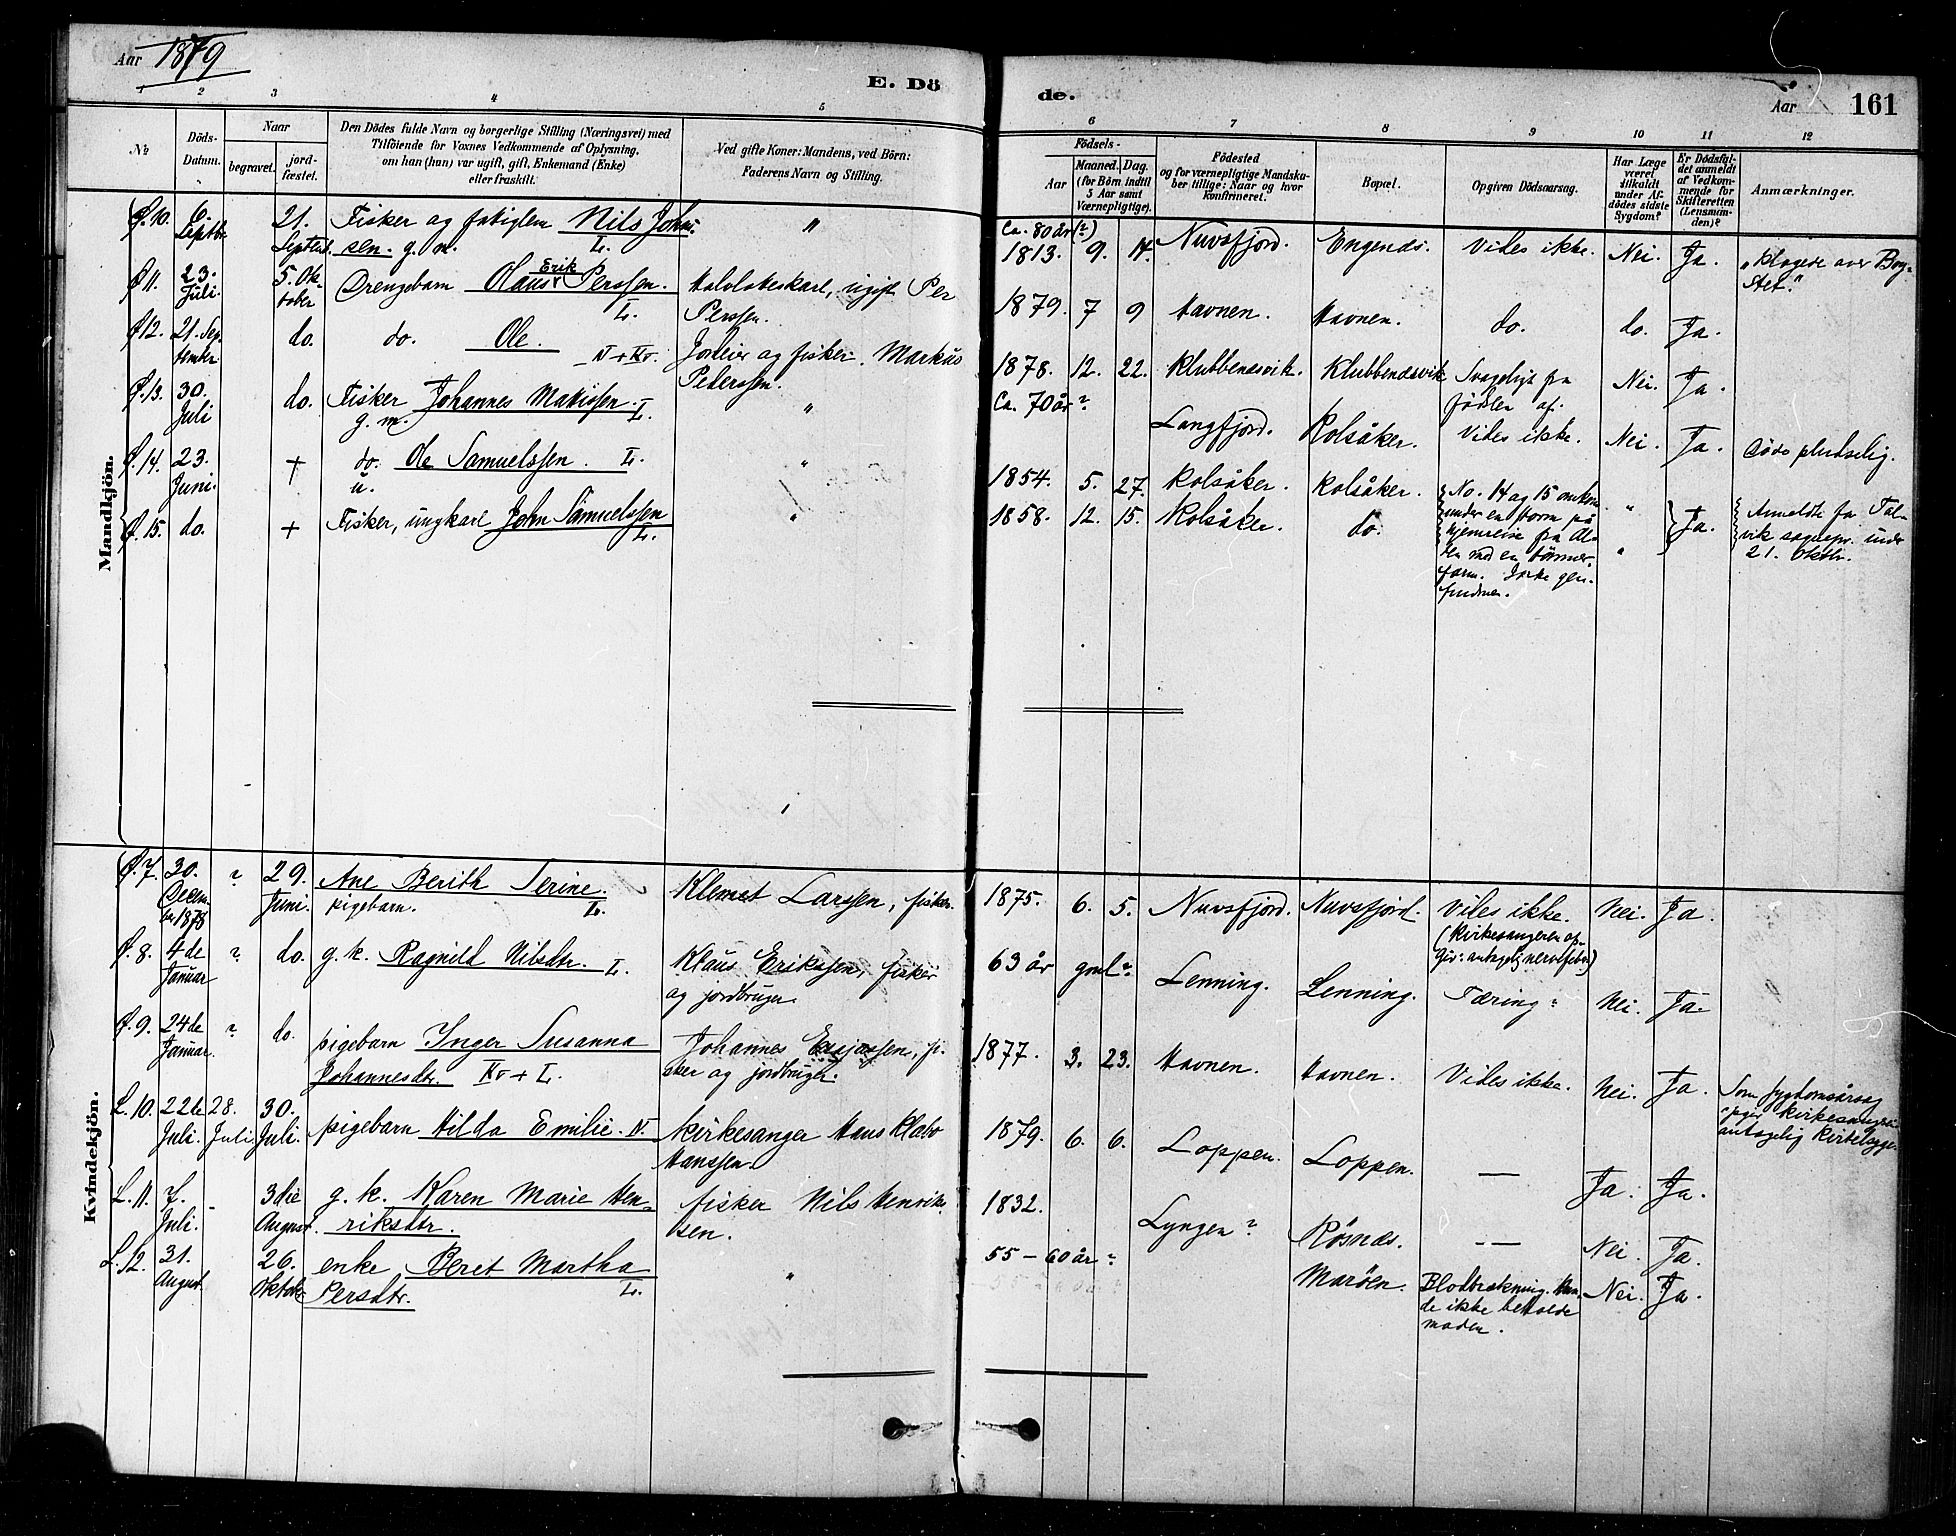 Aar 1879
E. Döde.
Aar 161
1 2 3 4 5 6 7 8 9 10 11 12
No.
Döds-Datum.
Naar
begravet.
jordfæstet.
Den Dödes fulde Navn og borgerlige Stilling (Næringsvei) med
Tilföiende for Voxnes Vedkommende af Oplysning,
om han (hun) var ugift, gift, Enkemand (Enke)
eller fraskilt.
Ved gifte Koner: Mandens, ved Börn:
Faderens Navn og Stilling.
Födsels-
Aar
Maaned. Dag.
(for Börn indtil
5 Aar samt
Værnepligtige).
Födested
og for værnepligtige Mandskaber tillige: Naar og hvor
konfirmeret.
Bopæl.
Opgiven Dödsaarsag.
Har Læge
været
tilkaldt
under Afdödes sidste
Sygdom?
Er Dödsfaldet anmeldt
af Vedkommende for
Skifteretten
(Lensmanden)?
Anmærkninger.
Mandkjön.
Ø. 10. 6. Septbr. 21. Septemb. Fisker og fatiglem Nils Johnssen. g. m. L. " Ca. 80 år (?) 1813. 9. 14. Nuvsfjord. Engenæs. Vides ikke. Nei. Ja. "Klagede over Brystet."
Ø. 11. 23. Juli. 5. Oktober Drengebarn Olaus Erik Perssen. L. ugift Per Perssen. 1879. 7 9 Havnen. Havnen. do. do. Ja.
Ø. 12. 21. September do. do. Ole. N + Kv. Jordeier og fisker Markus Peterssen. 1878. 12. 22. Klubbenæsvik. Klubbenæsvik Svagelighed fra födslen af. Nei. Ja.
Ø. 13. 30. Juli do. Fisker Johannes Matissen. L. g. m. " Ca. 70 år ? Langfjord. Kolsåker. Vides ikke. Nei. Ja. Döde pludselig.
Ø. 14. 23. Juni. + do. Ole Samuelssen. L. u. " 1854. 5. 27. Kolsåker. Kolsåker. No. 14 og 15 omkom under en storm på hjemreise fra Alten med en tömmerfarm. Ikke genfundne. " Ja. Anmeldt fra Talvik sognepr. under 21. Oktbr.
Ø. 15. do. + Fisker, ungkarl John Samuelssen L. " 1858. 12. 15. Kolsåker. do. "
Kvindekjön.
Ø. 7. 30. Decembr. 1878 ? 29. Juni. Ane Berith Serine. L. pigebarn. Klemet Larssen, fisker. 1875. 6. 5. Nuvsfjord. Nuvsfjord. Vides ikke. (Kirkesangeren opgiv: antagelig nervefeber) Nei. Ja.
Ø. 8. 4de Januar ? do. g. k. Ragnild Nilsdtr. L. Klaus Erikssen, fisker og jordbruger. 63 år gml ? Lenning. Lenning. Tæring ? Nei. Ja.
Ø. 9. 24de Januar. ? do. pigebarn Inger Susanna Johannesdtr. Kv + L. Johannes fisker og jordbruger. 1877. 3. 23. Havnen. Havnen. Vides ikke. Nei. Ja. Som sygdomsårsag kirkesangeren antagelig kirtelsyge.
L. 10. 22de Juli. 28. Juli. 30. Juli. pigebarn Hilda Emilie. N. Kirkesanger Hans Klæbo Hanssen. 1879. 6. 6. Loppen. Loppen. — Ja. Ja.
L. 11. 7. Juli. - 3die August. g. k. Karen Marie Henriksdtr. fisker Nils Henriksen. 1832. Lyngen ? Rösnæs. — — Nei. Ja.
L. 12. 31. August. 26. Oktober enke Beret Martha Persdtr. L. " 55 – 60 år ? Maröen. Blodbrækning. Kunde ikke beholde maden. Nei. Ja.